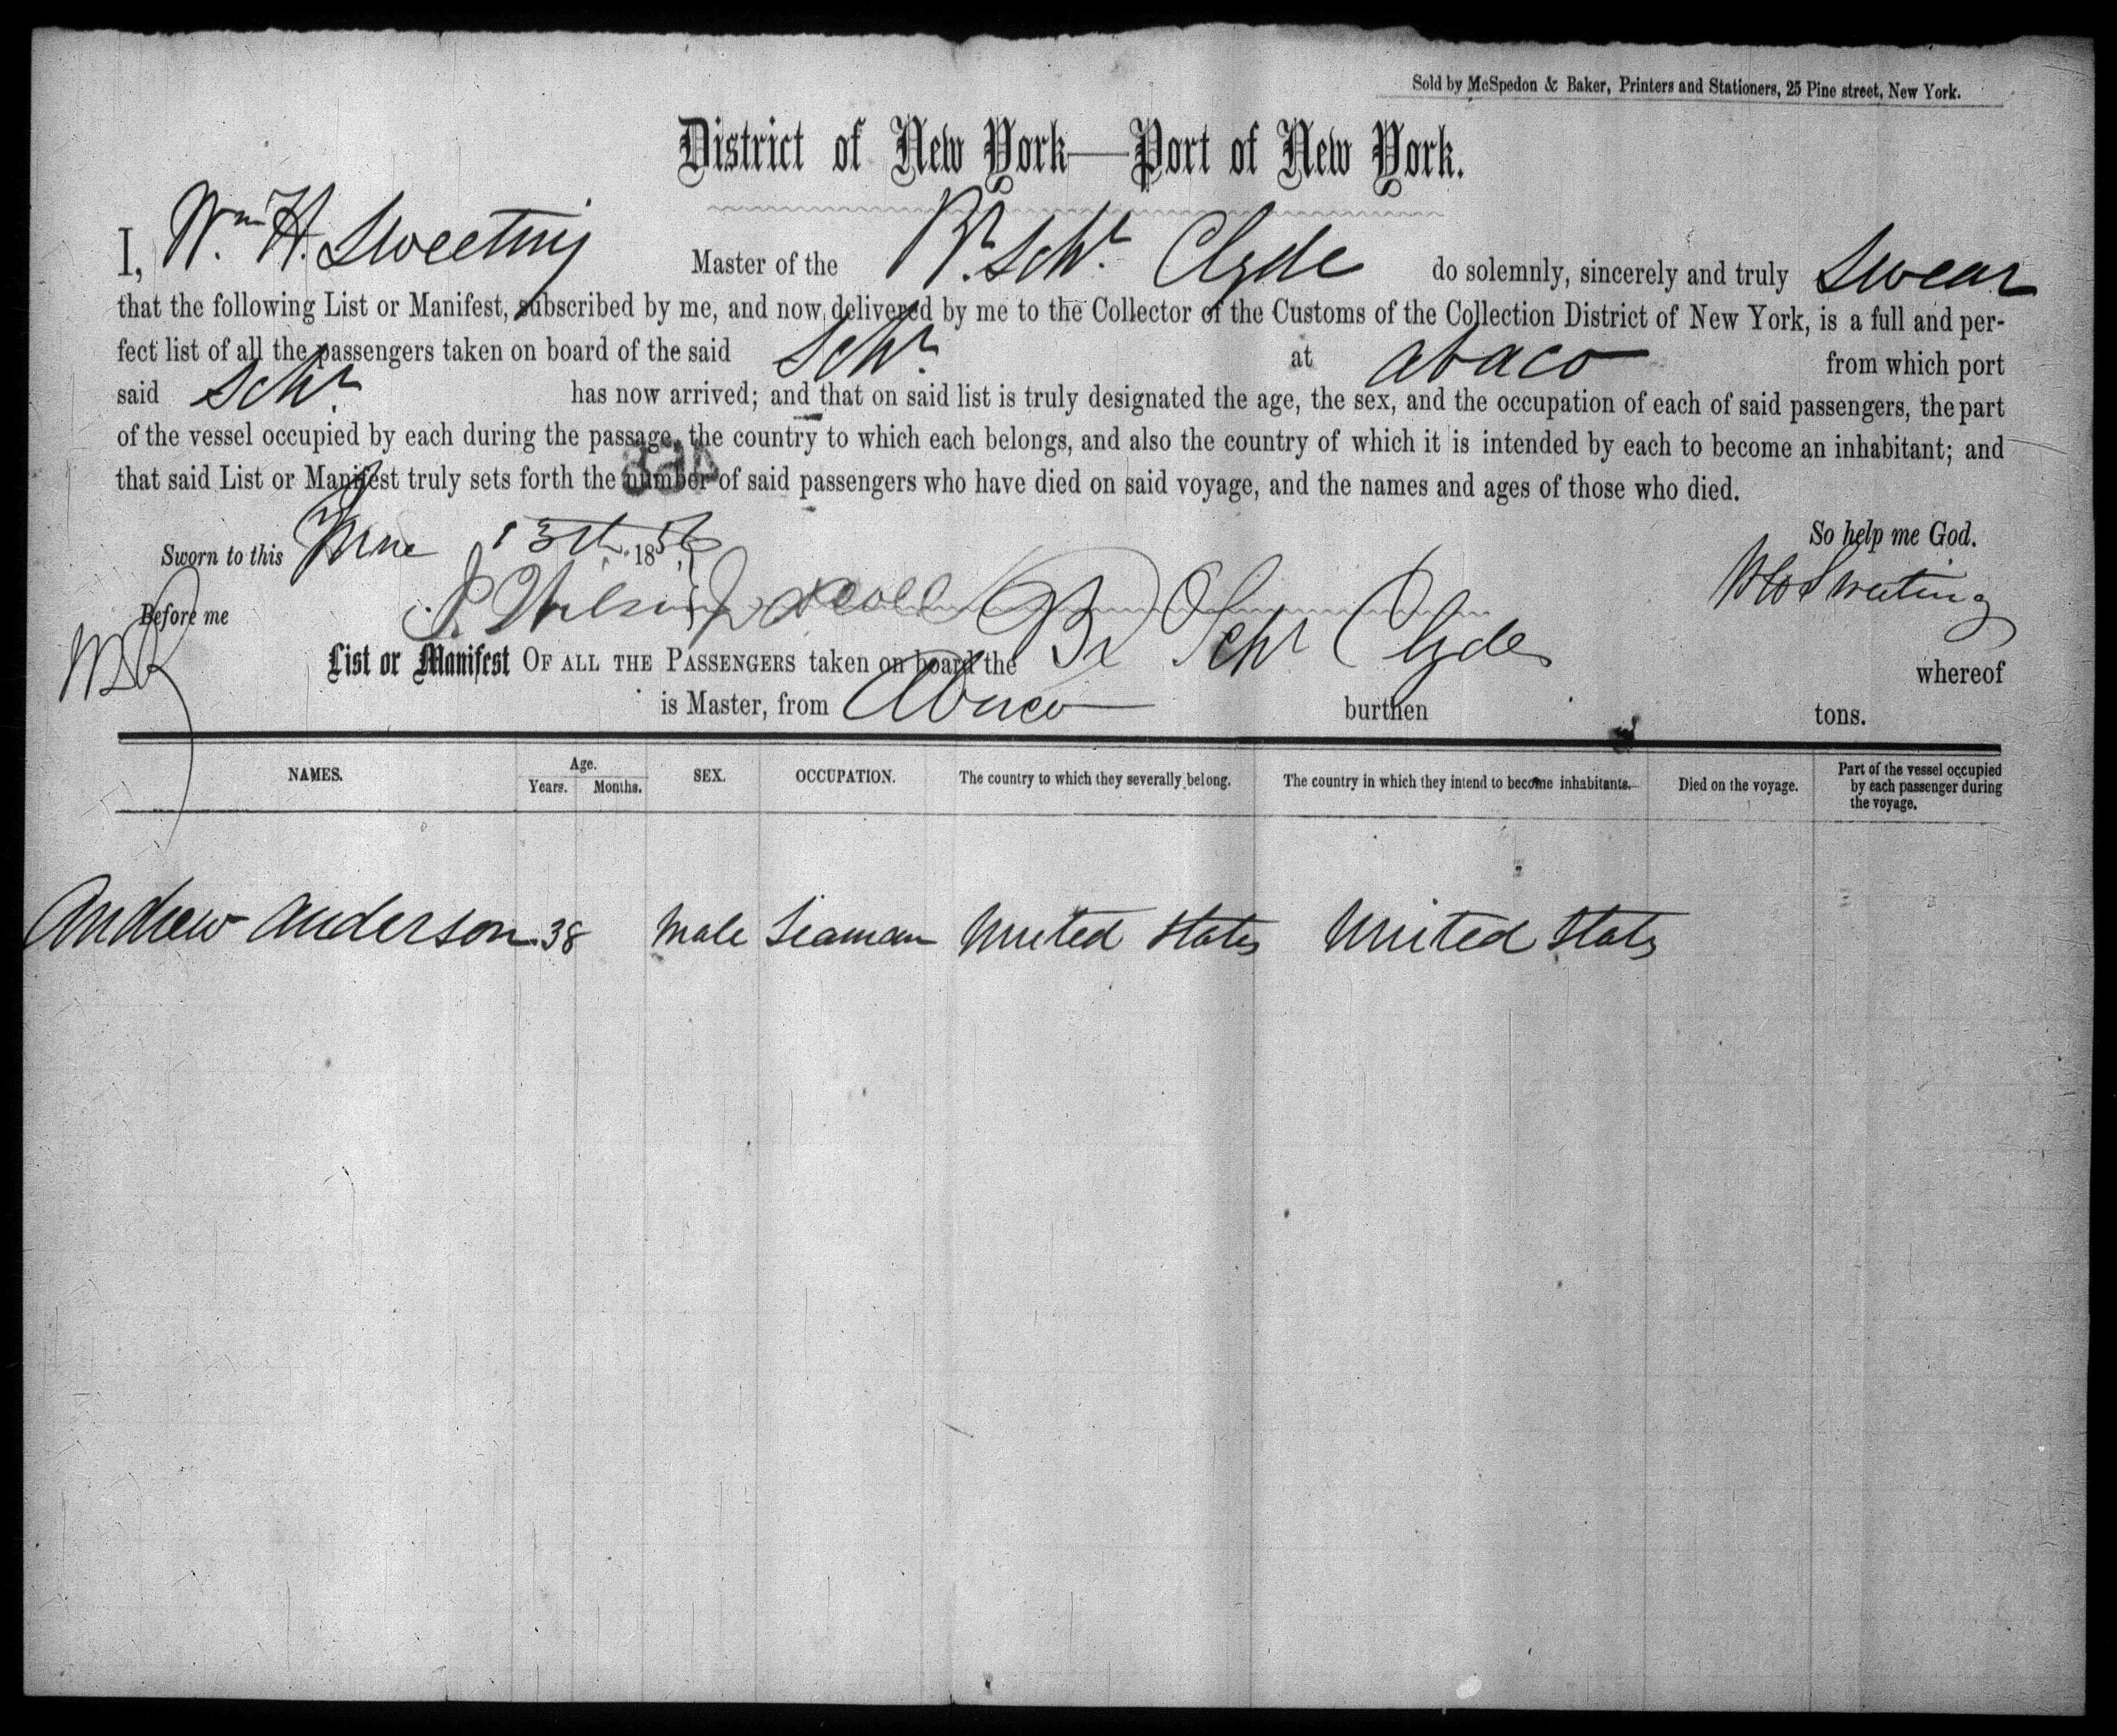 Sold by McSpedon & Baker, Printers and Stationers, 25 Pine street, New York.
District of New York—Port of New York.
I, Wm H. Sweeting Master of the Br. Schr. Clyde do solemnly, sincerely and truly swear
that the following List or Manifest, subscribed by me, and now delivered by me to the Collector of the Customs of the Collection District of New York, is a full and per-
fect list of all the passengers taken on board of the said Schr. at abaco from which port
said Schr. has now arrived; and that on said list is truly designated the age, the sex, and the occupation of each of said passengers, the part
of the vessel occupied by each during the passage, the country to which each belongs, and also the country of which it is intended by each to become an inhabitant; and
that said List or Manifest truly sets forth the number of said passengers who have died on said voyage, and the names and ages of those who died.
So help me God.
Sworn to this June 13th 1856
Wm H Sweeting
Before me
List or Manifest OF ALL THE PASSENGERS taken on board the Br Schr Clyde whereof
is Master, from Abaco burthen tons.
NAMES. Age. Years. Months. SEX. OCCUPATION. The country to which they severally belong. The country in which they intend to become inhabitants. Died on the voyage. Part of the vessel occupied by each passenger during the voyage.
Andrew Anderson 38 Male Seaman United States United States